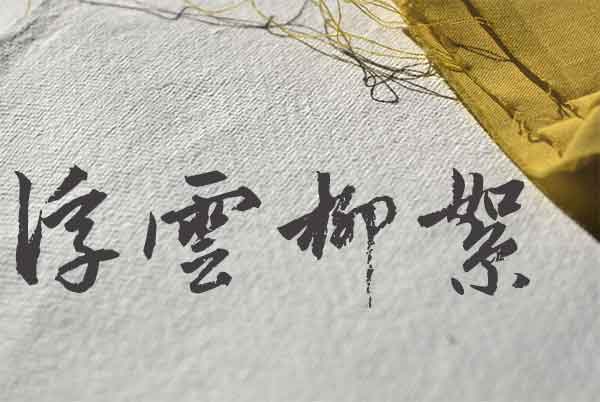 浮雲柳絮